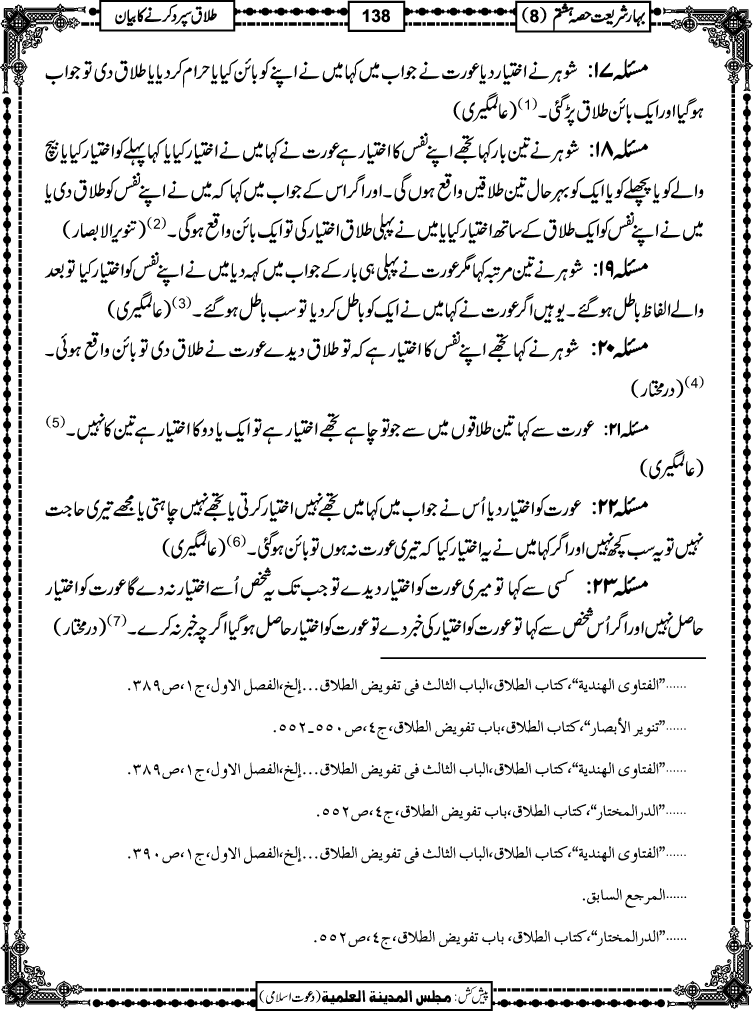 بہارِ شریعت حصہ ہشتم (8)
138
طلاق سپرد کرنے کا بیان
مسئلہ ۱۷: شوہر نے اختیار دیا عورت نے جواب میں کہا میں نے اپنے کو بائن کیا یا حرام کردیا یا طلاق دی تو جواب
ہوگیا اور ایک بائن طلاق پڑ گئی۔(1) (عالمگیری)
مسئلہ ۱۸: شوہر نے تین بار کہا تجھے اپنے نفس کا اختیار ہے عورت نے کہا میں نے اختیار کیا یا کہا پہلے کو اختیار کیا یا بیچ
والے کو یا پچھلے کو یا ایک کو بہر حال تین طلاقیں واقع ہوں گی۔ اور اگر اس کے جواب میں کہا کہ میں نے اپنے نفس کو طلاق دی یا
میں نے اپنے نفس کو ایک طلاق کے ساتھ اختیار کیا یا میں نے پہلی طلاق اختیار کی تو ایک بائن واقع ہوگی۔(2) (تنویر الابصار)
مسئلہ ۱۹: شوہر نے تین مرتبہ کہا مگر عورت نے پہلی ہی بار کے جواب میں کہہ دیا میں نے اپنے نفس کو اختیار کیا تو بعد
والے الفاظ باطل ہوگئے۔ یوہیں اگر عورت نے کہا میں نے ایک کو باطل کردیا تو سب باطل ہوگئے۔(3) (عالمگیری)
مسئلہ ۲۰: شوہر نے کہا تجھے اپنے نفس کا اختیار ہے کہ تو طلاق دیدے عورت نے طلاق دی تو بائن واقع ہوئی۔
(4) (درمختار)
مسئلہ ۲۱: عورت سے کہا تین طلاقوں میں سے جو تو چاہے تجھے اختیار ہے تو ایک یا دو کا اختیار ہے تین کا نہیں۔(5)
(عالمگیری)
مسئلہ ۲۲: عورت کو اختیار دیا اُس نے جواب میں کہا میں تجھے نہیں اختیار کرتی یا تجھے نہیں چاہتی یا مجھے تیری حاجت
نہیں تو یہ سب کچھ نہیں اور اگر کہا میں نے یہ اختیار کیا کہ تیری عورت نہ ہوں تو بائن ہوگئی۔(6) (عالمگیری)
مسئلہ ۲۳: کسی سے کہا تو میری عورت کو اختیار دیدے تو جب تک یہ شخص اُسے اختیار نہ دے گا عورت کو اختیار
حاصل نہیں اور اگر اُس شخص سے کہا تو عورت کو اختیار کی خبر دے تو عورت کو اختیار حاصل ہوگیا اگرچہ خبر نہ کرے۔(7) (درمختار)
......”الفتاوی الھندیة“،کتاب الطلاق،الباب الثالث فی تفویض الطلاق...إلخ،الفصل الاول،ج١،ص٣٨٩.
......”تنویر الأبصار“،کتاب الطلاق،باب تفویض الطلاق،ج٤،ص٥٥٠ـ٥٥٢.
......”الفتاوی الھندیة“،کتاب الطلاق،الباب الثالث فی تفویض الطلاق...إلخ،الفصل الاول،ج١،ص٣٨٩.
......”الدرالمختار“،کتاب الطلاق،باب تفویض الطلاق،ج٤،ص٥٥٢.
......”الفتاوی الھندیة“،کتاب الطلاق،الباب الثالث فی تفویض الطلاق...إلخ،الفصل الاول،ج١،ص٣٩٠.
......المرجع السابق.
......”الدرالمختار“،کتاب الطلاق، باب تفویض الطلاق،ج٤،ص٥٥٢.
پیش کش: مجلس المدینة العلمیة (دعوت اسلامی)